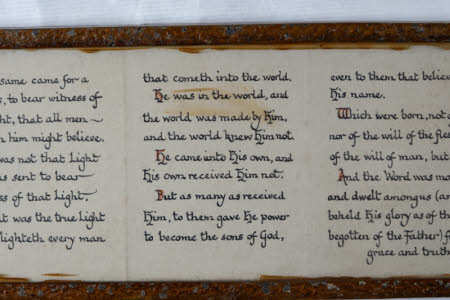 same came for a
to bear witness of
that all men
him might believe.
was not that Light
was sent to bear
of that Light.
was the true light
lighteth every man
that cometh into the world.
He was in the world, and
the world was made by him,
and the world knew him not.
He came unto his own, and
his own received him not.
But as many as received
him, to them gave he power
to become the sons of God,
even to them that believ
his name.
Which were born, not
nor of the will of the fles
of the will of man, but
And the Word was ma
and dwelt among us (an
beheld his glory as of th
begotten of the Father) f
grace and truth